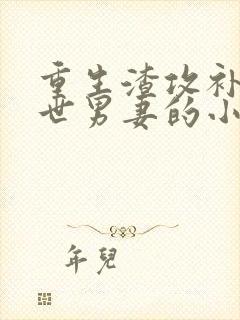 重生渣攻补
世男妻的小
年兒